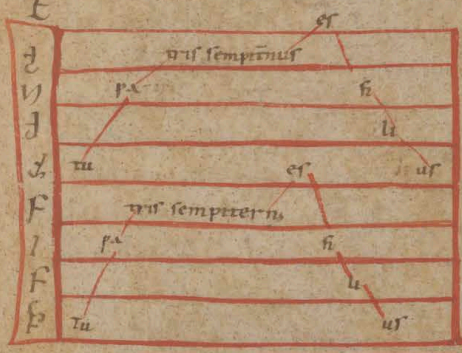 es
tris sempit̄nus
pa fi
li
tu us
es
tris sempiternus
pa fi
li
tu us